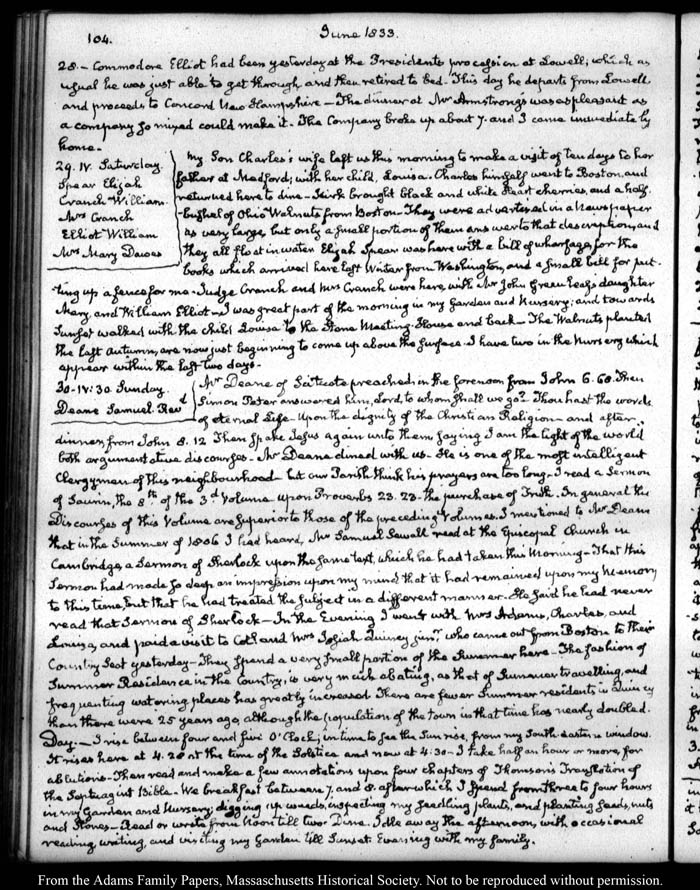 104.
June 1833.
28.- Commodore Elliot had been yesterday at the Presidents procession at Lowell; which as
usual he was just able to get through, and then retired to bed. This day he departs from Lowell
and proceeds to Concord New Hampshire - The dinner at Mr Armstrong's was as pleasant as
a company so mixed could make it. The Company broke up about 7. and I came immediately
home.
29. IV. Saturday
Spear Elijah
Cranch William.
Mrs Cranch
Elliot William
Mrs Mary Dawes
My Son Charles's wife left us this morning to make a visit of ten days to her
father at Medford; with her child, Louisa. Charles himself went to Boston, and
returned here to dine - Kirk brought black and white Heart cherries, and a half
bushel of Ohio Walnuts from Boston - They were advertised in a Newspaper
as very large, but only a small portion of them answer to that description, and
they all float in water. Elijah Spear was here with a bill of wharfage, for the
books which arrived here last Winter from Washington, and a small bill for put-
ting up a fence for me - Judge Cranch and Mrs Cranch were here, with Mr John Greenleaf's daughter
Mary, and William Elliot - I was great part of the morning in my Garden and Nursery; and towards
Sunset walked with the child Louisa to the Stone Meeting-House and back - The Walnuts planted
the last Autumn, are now just beginning to come up above the surface. I have two in the Nursery which
appear within the last two days -
30. IV:30. Sunday.
Deane Samuel. Revd
Mr Deane of Scituate preached in the forenoon from John 6.60. Then
Simon Peter answered him, Lord, to whom shall we go? Thou hast the words
of eternal Life - Upon the dignity of the Christian Religion - and after
dinner, from John 8.12 Then spake Jesus again unto them saying I am the light of the world
both argumentative discourses - Mr Deane dined with us - He is one of the most intelligent
Clergymen of this neighbourhood - but our Parish think his prayers are too long - I read a Sermon
of Saurin, the 8th of the 3d Volume upon Proverbs 23.23. the purchase of Truth. In general the
Discourses of this Volume are superior to those of the preceding Volumes. I mentioned to Mr Deane
that in the Summer of 1806 I had heard, Mr Samuel Sewall read at the Episcopal Church in
Cambridge, a Sermon of Sherlock upon the same text, which he had taken this Morning - That this
Sermon had made so deep an impression upon my mind that it had remained upon my memory
to this time, but that he had treated the subject in a different manner. He said he had never
read that Sermon of Sherlock - In the Evening I went with Mrs Adams, Charles, and
Louisa, and paid a visit to Coll and Mrs Josiah Quincy junr. who came out from Boston to their
Country Seat yesterday - They spend a very small portion of the Summer here - The fashion of
Summer Residence in the Country, is very much abating, as that of Summer travelling, and
frequenting watering places has greatly increased. There are fewer Summer residents in Quincy
than there were 25 years ago, although the population of the town in that time has nearly doubled.
Day. - I rise between four and five O'Clock; in time to see the Sun rise, from my South-eastern window.
It rises here at 4.26 at the time of the Solstice and now at 4:30 - I take half an hour or more, for
ablutions - Then read and make a few annotations upon four chapters of Thomson's Translation of
the Septuagint Bible - We breakfast between 7, and 8. after which I spend from three to four hours
in my Garden and Nursery; digging up weeds, inspecting my seedling plants, and planting seeds, nuts
and stones - Read or write from Noon till two. Dine. Idle away the afternoon, with occasional
reading, writing, and visiting my Garden till Sunset. Evening with my family.
From the Adams Family Papers, Massachusetts Historical Society. Not to be reproduced without permission.